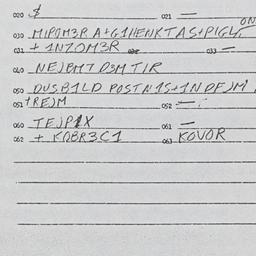 020 $ 021 —
ON
030 MIPOM3R A+G1HENKTAS+PIGL,
031 + 1NZOM3R 032 033 —
040 NEJBMT D3M TIR
050 DUSB1LD POSTN1S+1NDEJM
051 +REJM 052 —
060 TEJP1X 061 —
062 + KOBR3C1 063 KOVOR